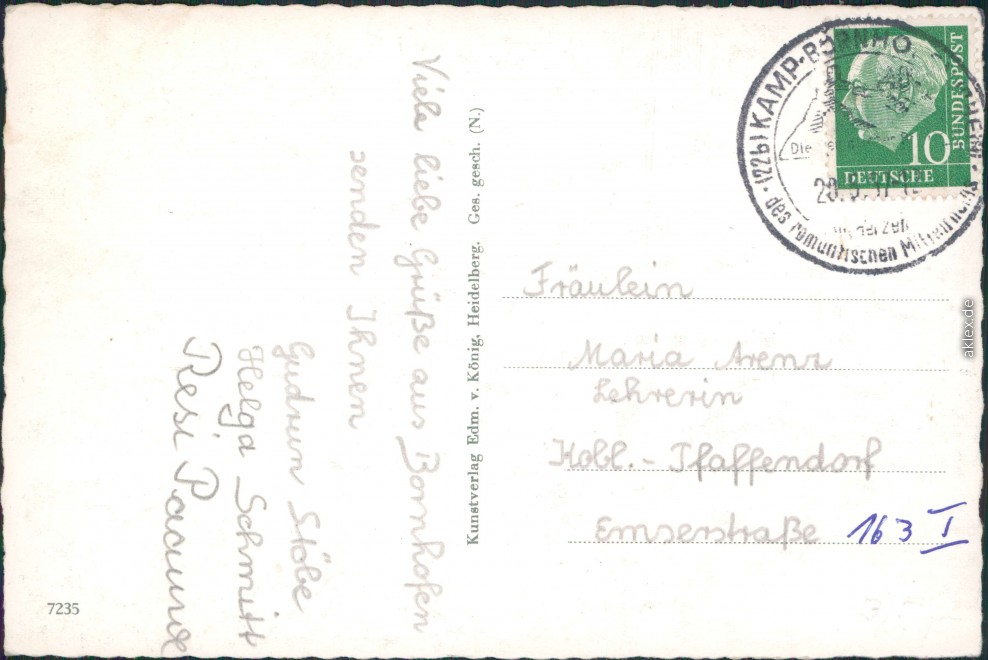 Viele liebe Grüße aus Bornhofen
senden Ihnen
Gudrun Stöbe
Helga Schmitt
Resi
Kunstverlag Edm. v. König, Heidelberg. Ges. gesch. (N.)
7235
(22b) KAMP-BORNHO
Die
20.
des romantischen Mittelrheins
10
DEUTSCHE
BUNDESPOST
Fräulein
Maria Arenz
Lehrerin
Kobl.-Pfaffendorf
Emserstraße 163 I
aklex.de